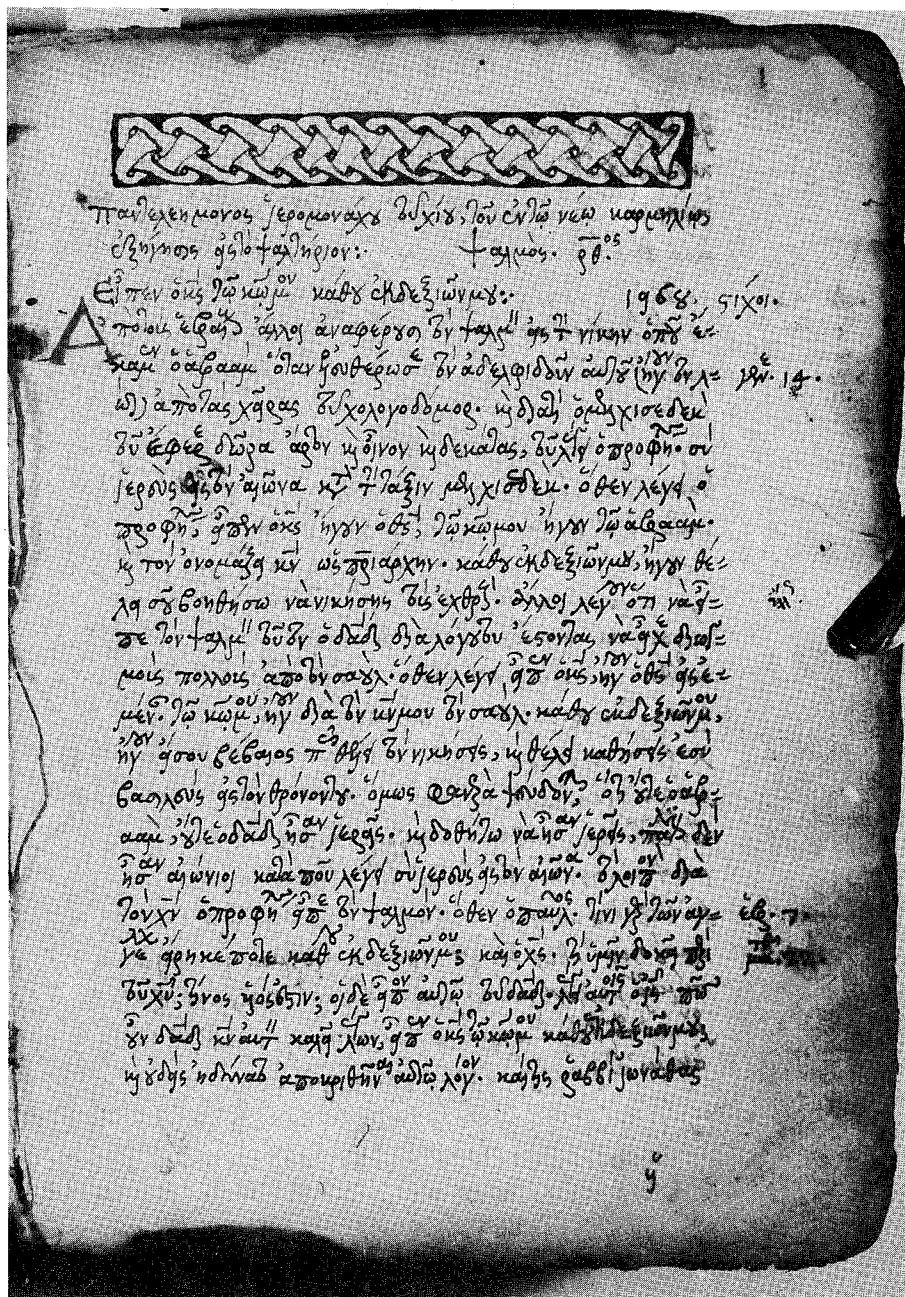 Παντελεήμονος ἱερομονάχου τοῦ χίου, τοῦ ἐν τῷ νέῳ καρμηλίῳ,
ἐξήγησις εἰς τὸ ψαλτήριον:. ψαλμὸς. ρθ.ος
Εἶπεν ὁ κς τῷ κῳ μου κάθου ἐκ δεξιῶν μου:. 1968. στίχοι.
Ἀπὸ τοὺς ἑβραίους ἄλλοι ἀναφέρουσι τὸν ψαλμὸν εἰς τὴν νίκην ὁποῦ ἔ-
καμεν ὁ ἀβραὰμ ὅταν ἠλευθέρωσε τὸν ἀδελφιδοῦν αὐτοῦ (ἤγουν τὸν λ- γέν. 14.
ὼτ) ἀπὸ τὰς χεῖρας τοῦ χολογοδόμορ. καὶ διατὶ ὁ μελχισεδὲκ
τοῦ ἔφερε δῶρα ἄρτον καὶ οἶνον καὶ δεκάτας, τοῦ λέγει ὁ προφήτης. σὺ
ἱερεὺς εἰς τὸν αἰῶνα κατὰ τὴν τάξιν μελχισεδέκ. ὅθεν λέγει ὁ
προφήτης, εἶπεν ὁ κς ἤγουν ὁ θς, τῷ κῳ μου ἤγουν τῷ ἀβραάμ.
καὶ τὸν ὀνομάζει κν ὡς πριάρχην. κάθου ἐκ δεξιῶν μου, ἤγουν θέ-
λει σοῦ βοηθήσω νὰ νικήσῃς τοὺς ἐχθρούς. ἄλλοι λέγουν ὅτι νὰ εἶ-
πε τὸν ψαλμὸν τοῦτον ὁ δαδ διὰ λόγου του ἔστοντας νὰ εἶχε διωγ-
μοὺς πολλοὺς ἀπὸ τὸν σαούλ. ὅθεν λέγει εἶπεν ὁ κς, ἤγουν ὁ θς εἰς ἐ-
μέν. τῷ κῳ μου, ἤγουν διὰ τὸν κν μου τὸν σαούλ. κάθου ἐκ δεξιῶν μου,
ἤγουν ἔσου βέβαιος πῶς θέλεις τὸν νικήσεις, καὶ θέλεις καθήσεις ἐσὺ
βασιλεὺς εἰς τὸν θρόνον του. ὅμως
ἀὰμ, οὔτε ὁ δαδ ἦσαν ἱερεῖς. καὶ δοθήτω νὰ ἦσαν ἱερεῖς, πάλιν δὲν
ἦσαν αἰώνιοι καταποῦ λέγει σὺ ἱερεὺς εἰς τὸν αἰῶνα. τὸ λοιπὸν διὰ
τὸν χν ὁ προφήτης εἶπε τὸν ψαλμόν. ὅθεν ὁ παῦλος. τίνι γὰρ τῶν ἀγ- ἑβρ. 7.
γέλων εἴρηκέ ποτε κάθου ἐκ δεξιῶν μου καὶ ὁ χς. τί ὑμῖν δοκεῖ περὶ
τοῦ χυ; τίνος υἱός ἐστιν; οἱ δὲ εἶπον αὐτῷ τοῦ δαδ. λέγει αὐτοῖς πῶς
οὖν δαδ κν αὐτὸν καλεῖ λέγων, εἶπεν ὁ κς τῷ κῳ μου κάθου ἐκ δεξιῶν μου;
καὶ οὐδεὶς ἠδύνατο ἀποκριθῆναι αὐτῷ λόγον. καί τις ῥαββὶ ἰωνάθας